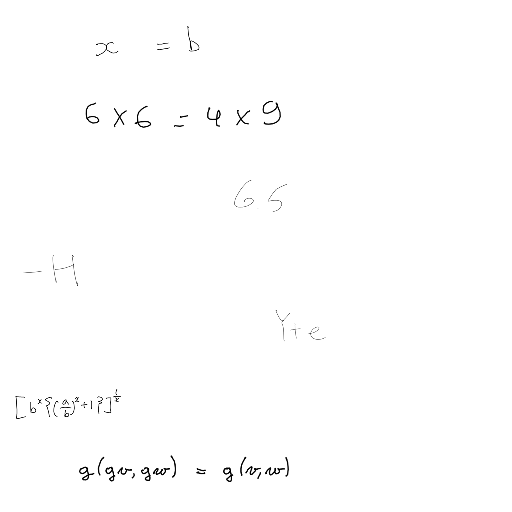 x = b
6 × 6 = 4 × 9
65
-H
Y+e
[b^x{(a/b)^x+1}]^{1/x}
g(gv, gw) = g(v, w)